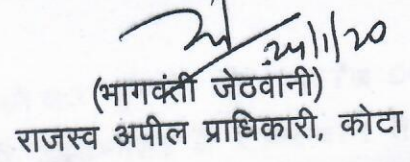 24/1/20
(भागवंती जेठवानी)
राजस्व अपील प्राधिकारी, कोटा